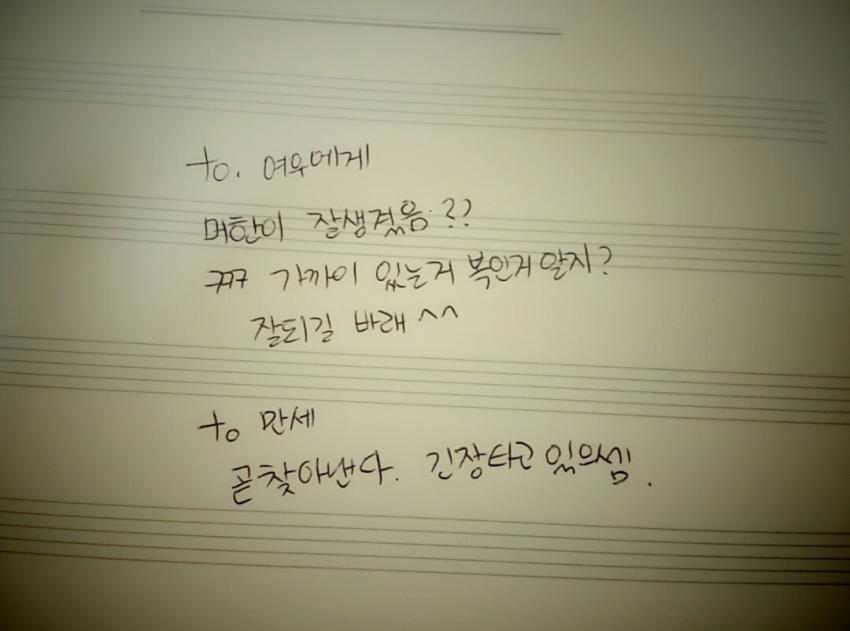 to. 여우에게
머한이 잘생겼음??
ㅋㅋㅋ 가까이 있는거 복인거 알지?
잘되길 바래 ^^
to 만세
곧 찾아낸다. 긴장타고 있으셈.